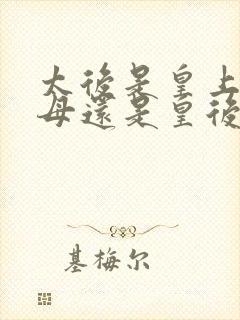 太後是皇上
母還是皇後
基梅尔